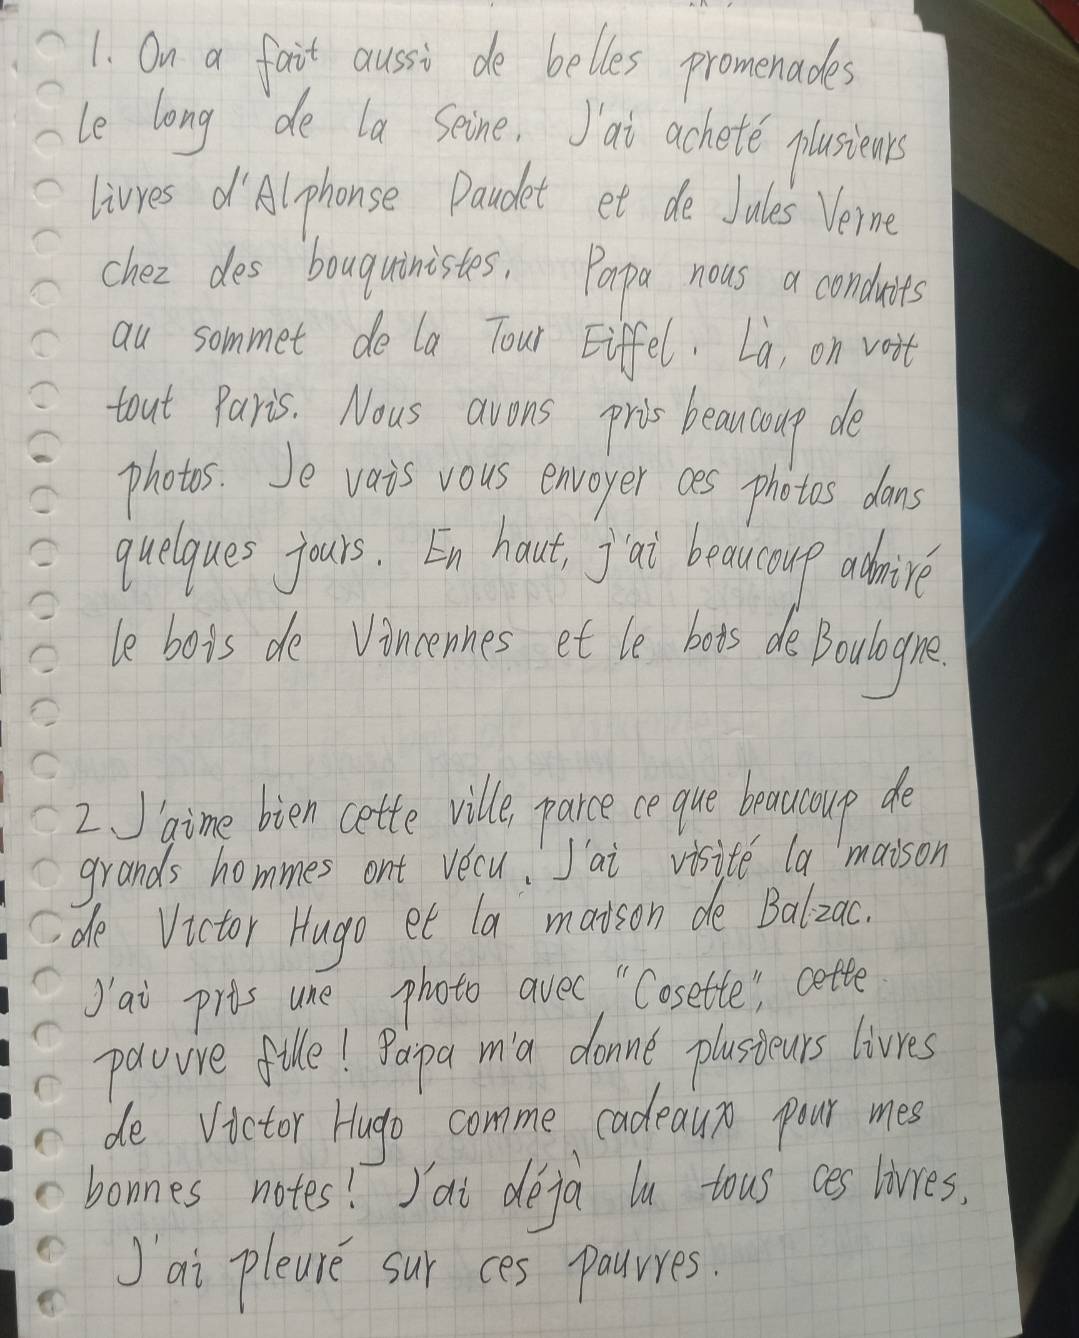 1. On a fait aussi de belles promenades
le long de la Seine. J'ai acheté plusieurs
livres d'Alphonse Daudet et de Jules Verne
chez des bouquinistes. Papa nous a conduits
au sommet de la Tour Eiffel. Là, on voit
tout Paris. Nous avons pris beaucoup de
photos. Je vais vous envoyer ces photos dans
quelques jours. En haut, j'ai beaucoup admiré
le bois de Vincennes et le bois de Boulogne.
2. J'aime bien cette ville, parce ce que beaucoup de
grands hommes ont vécu. J'ai visité la maison
de Victor Hugo et la maison de Balzac.
J'ai pris une photo avec "Cosette", cette
pauvre fille! Papa m'a donné plusieurs livres
de Victor Hugo comme cadeaux pour mes
bonnes notes! J'ai déjà lu tous ces livres.
J'ai pleuré sur ces pauvres.